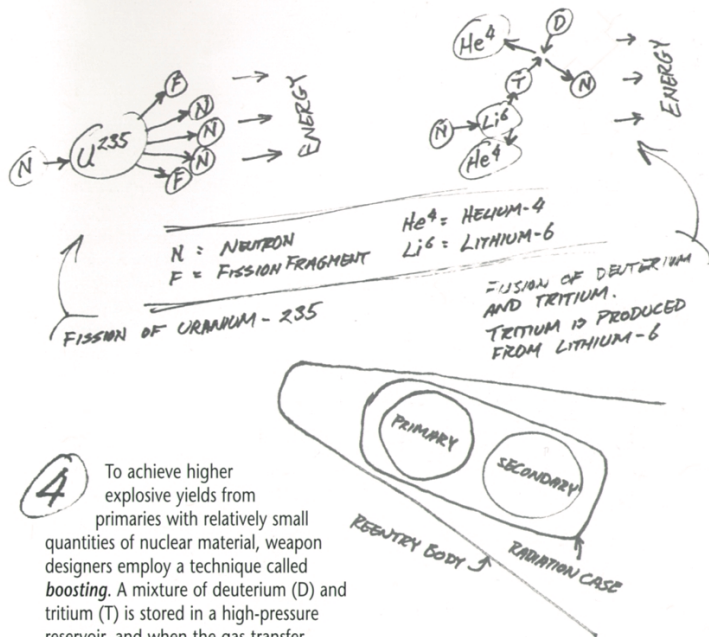 N
U235
F
N
N
N
F
ENERGY
He4
D
T
N
N
Li6
He4
ENERGY
N = NEUTRON
F = FISSION FRAGMENT
He4 = HELIUM-4
Li6 = LITHIUM-6
FISSION OF URANIUM-235
FUSION OF DEUTERIUM
AND TRITIUM.
TRITIUM IS PRODUCED
FROM LITHIUM-6
PRIMARY
SECONDARY
REENTRY BODY
RADIATION CASE
4
To achieve higher
explosive yields from
primaries with relatively small
quantities of nuclear material, weapon
designers employ a technique called
boosting. A mixture of deuterium (D) and
tritium (T) is stored in a high-pressure
reservoir, and when the gas transfer